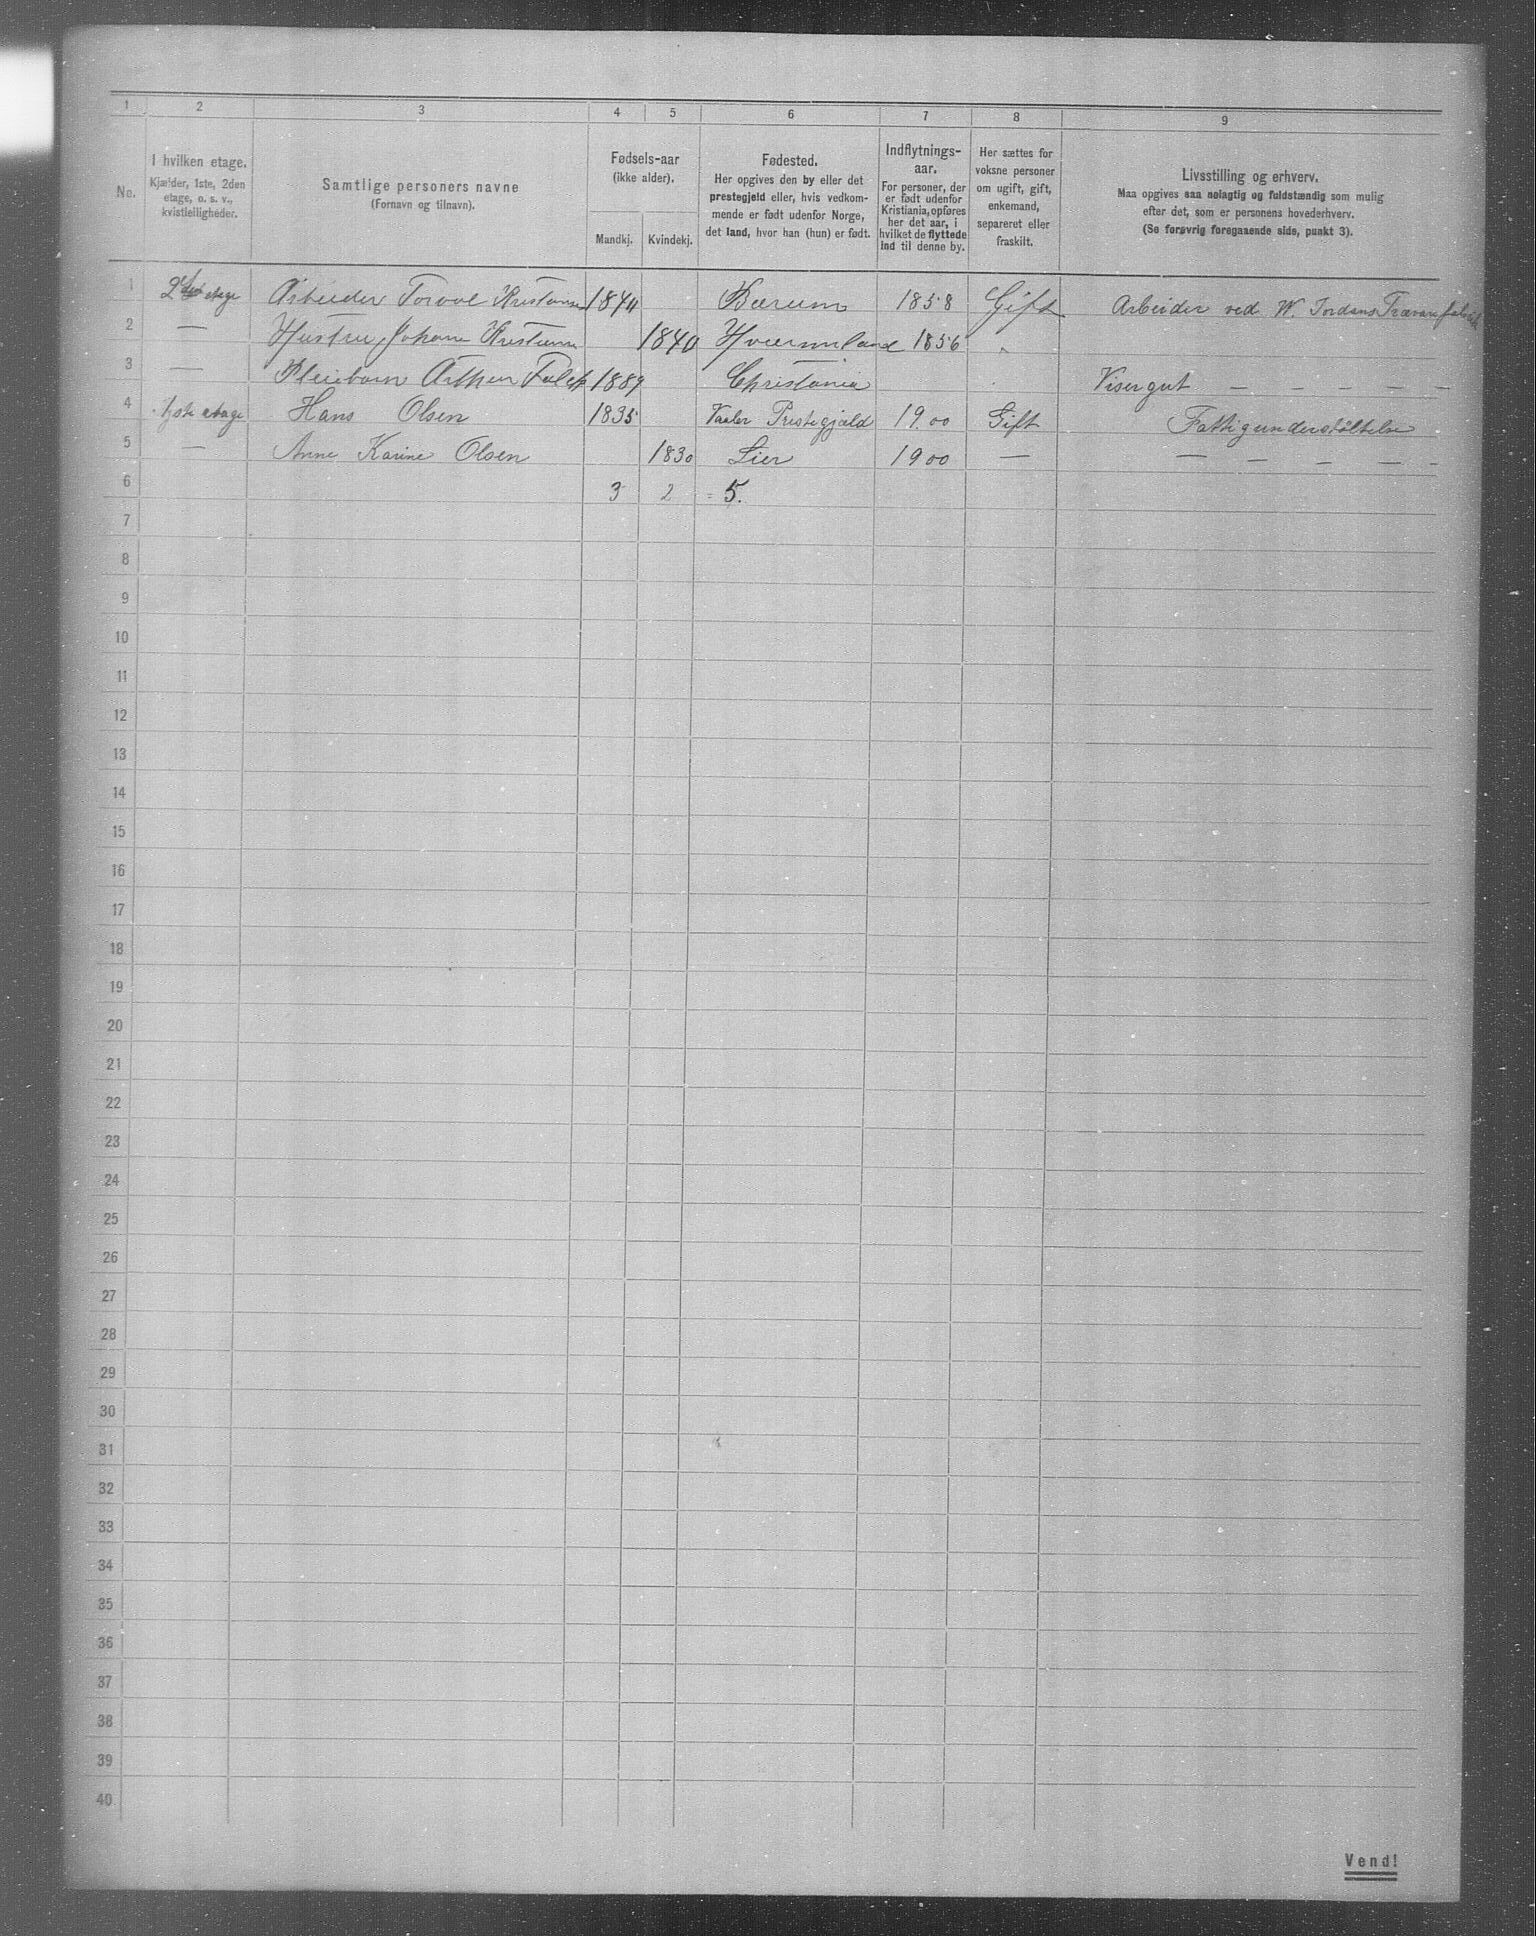 1 2 3 4 5 6 7 8 9
No.
I hvilken etage.
Kjælder, 1ste, 2den
etage, o. s. v.,
kvistleiligheder.
Samtlige personers navne
(Fornavn og tilnavn).
Fødsels-aar
(ikke alder).
Mandkj. Kvindekj.
Fødested.
Her opgives den by eller det
prestegjeld eller, hvis vedkom-
mende er født udenfor Norge,
det land, hvor han (hun) er født.
Indflytnings-
aar.
For personer, der
er født udenfor
Kristiania, opføres
her det aar, i
hvilket de flyttede
ind til denne by.
Her sættes for
voksne personer
om ugift, gift,
enkemand,
separeret eller
fraskilt.
Livsstilling og erhverv.
Maa opgives saa nøiagtig og fuldstændig som mulig
efter det, som er personens hovederhverv.
(Se forøvrig foregaaende side, punkt 3).
1 etage Arbeider Torvol 1844 Bærum 1858 Gift Arbeider ved W. Jordans Trævarefabrik
2 — Hustru Johane 1840 1856 "
3 — Pleiebarn Arthur Falck 1889 Christania Visergut — — — — —
4 1ste etage Hans Olsen 1835 Vaaler Prestegjæld 1900 Gift Fattigunderstøttelse
5 — Anne Karine Olsen 1830 Lier 1900 — — — — — —
6 3 2 = 5.
7
8
9
10
11
12
13
14
15
16
17
18
19
20
21
22
23
24
25
26
27
28
29
30
31
32
33
34
35
36
37
38
39
40
Vend!